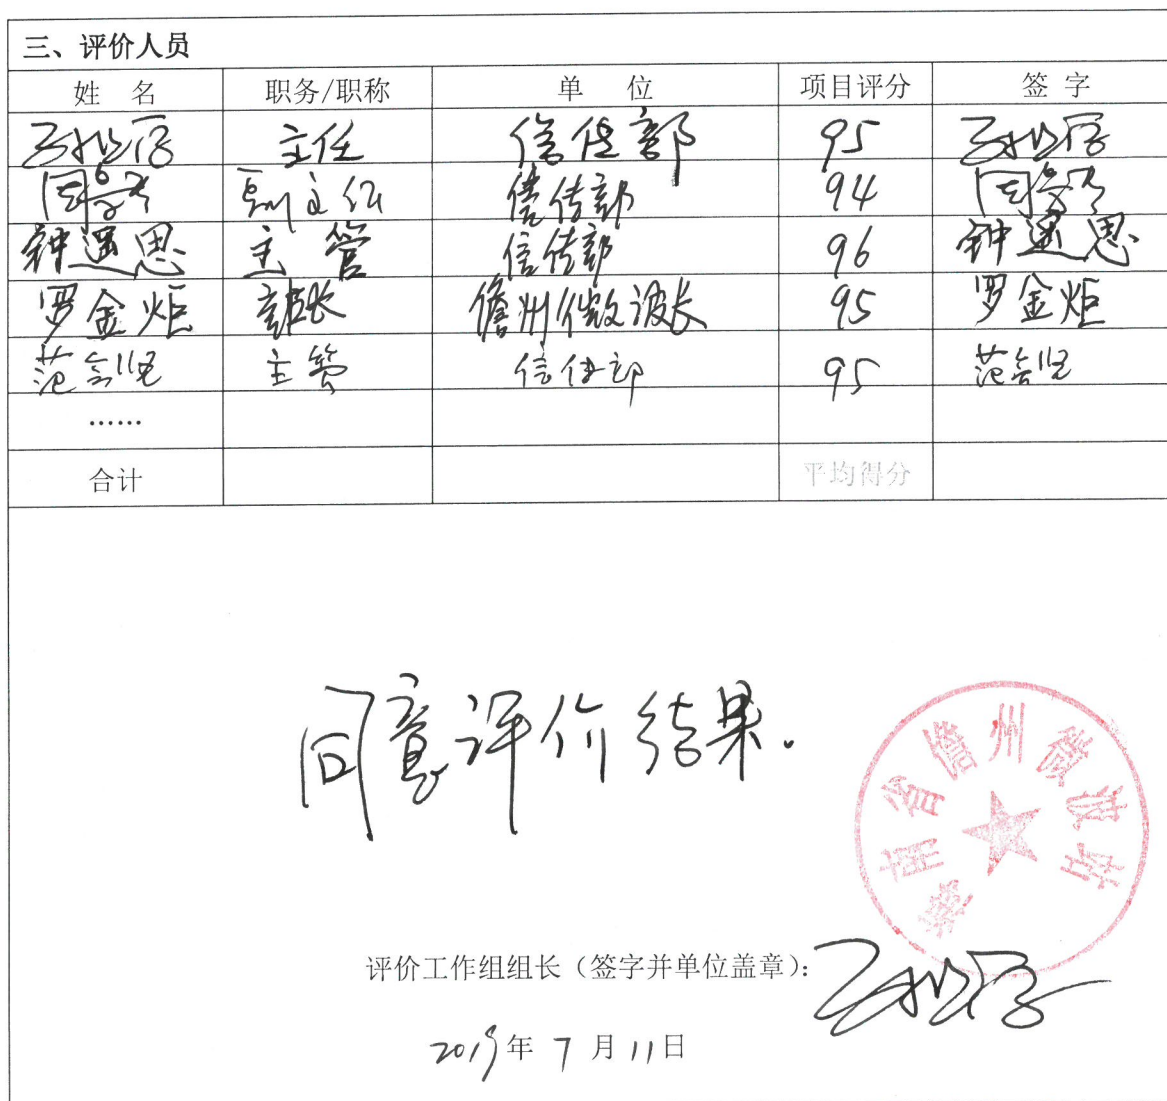 三、评价人员
姓 名 职务/职称 单 位 项目评分 签 字
主任 信传部 95
副主任 信传部 94
钟遥思 主 管 信传部 96 钟遥思
罗金炬 儋州微波 95 罗金炬
范 主管 信传部 95 范
······
合计 平均得分
同意评价结果.
海南省儋州微波站
评价工作组组长（签字并单位盖章）:
2019年 7 月 11 日